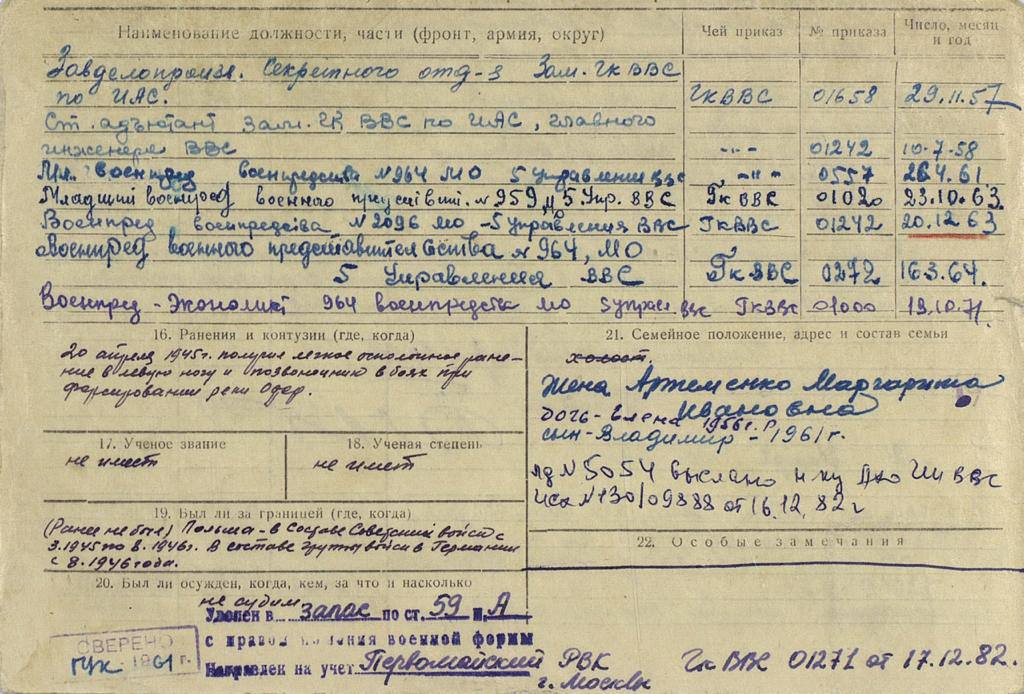 Наименование должности, части (фронт, армия, округ) Чей приказ № приказа Число, месяц и год
Завделопроизв. Секретного отд-я Зам. Гк ВВС
по ИАС. ГкВВС 01658 29.11.57
Ст. адъютант Зам. ГК ВВС по ИАС, главного
инженера ВВС -"- 01242 10.7.58
Мл. военпред военпредства №964 МО 5 управления ВВС -"- 0557 26.4.61.
Младший военпред военного № 959, 5 Упр. ВВС Гк ВВС 01020 23.10.63.
Военпред военпредства №2096 МО -5 управления ВВС ГкВВС 01242 20.12 63
Военпред военного представительства № 964, МО
5 Управления ВВС Гк ВВС 0272 16.3.64.
Военпред - Экономист 964 военпредства МО 5 управ. ВВС ГкВВС 01000 19.10.71.
16. Ранения и контузии (где, когда)
20 апреля 1945г. получил легкое осколочное ране-
ние в левую ногу и позвоночнику в боях при
форсировании реки Одер.
17. Ученое звание
не имеет
18. Ученая степень
не имеет
19. Был ли за границей (где, когда)
(Ранее не был) Польша - в Составе Советских войск с
3.1945 по 8.1946г. В составе группы войск в Германии
с 8.1946 года.
20. Был ли осужден, когда, кем, за что и насколько
не судим
Уволен в запас по ст. 59 п. А
с правом ношения военной формы
Направлен на учет Первомайский РВК
г. Москвы
СВЕРЕНО
ГУК 1961 г.
21. Семейное положение, адрес и состав семьи
холост.
Жена Артеменко Маргарита
Ивановна
дочь - Елена 1956г. р
сын - Владимир - 1961г.
лд №5054 выслано н-ку ВВС
исх №130/09888 от 16.12.82г
22. Особые замечания
Гк ВВС 01271 от 17.12.82.